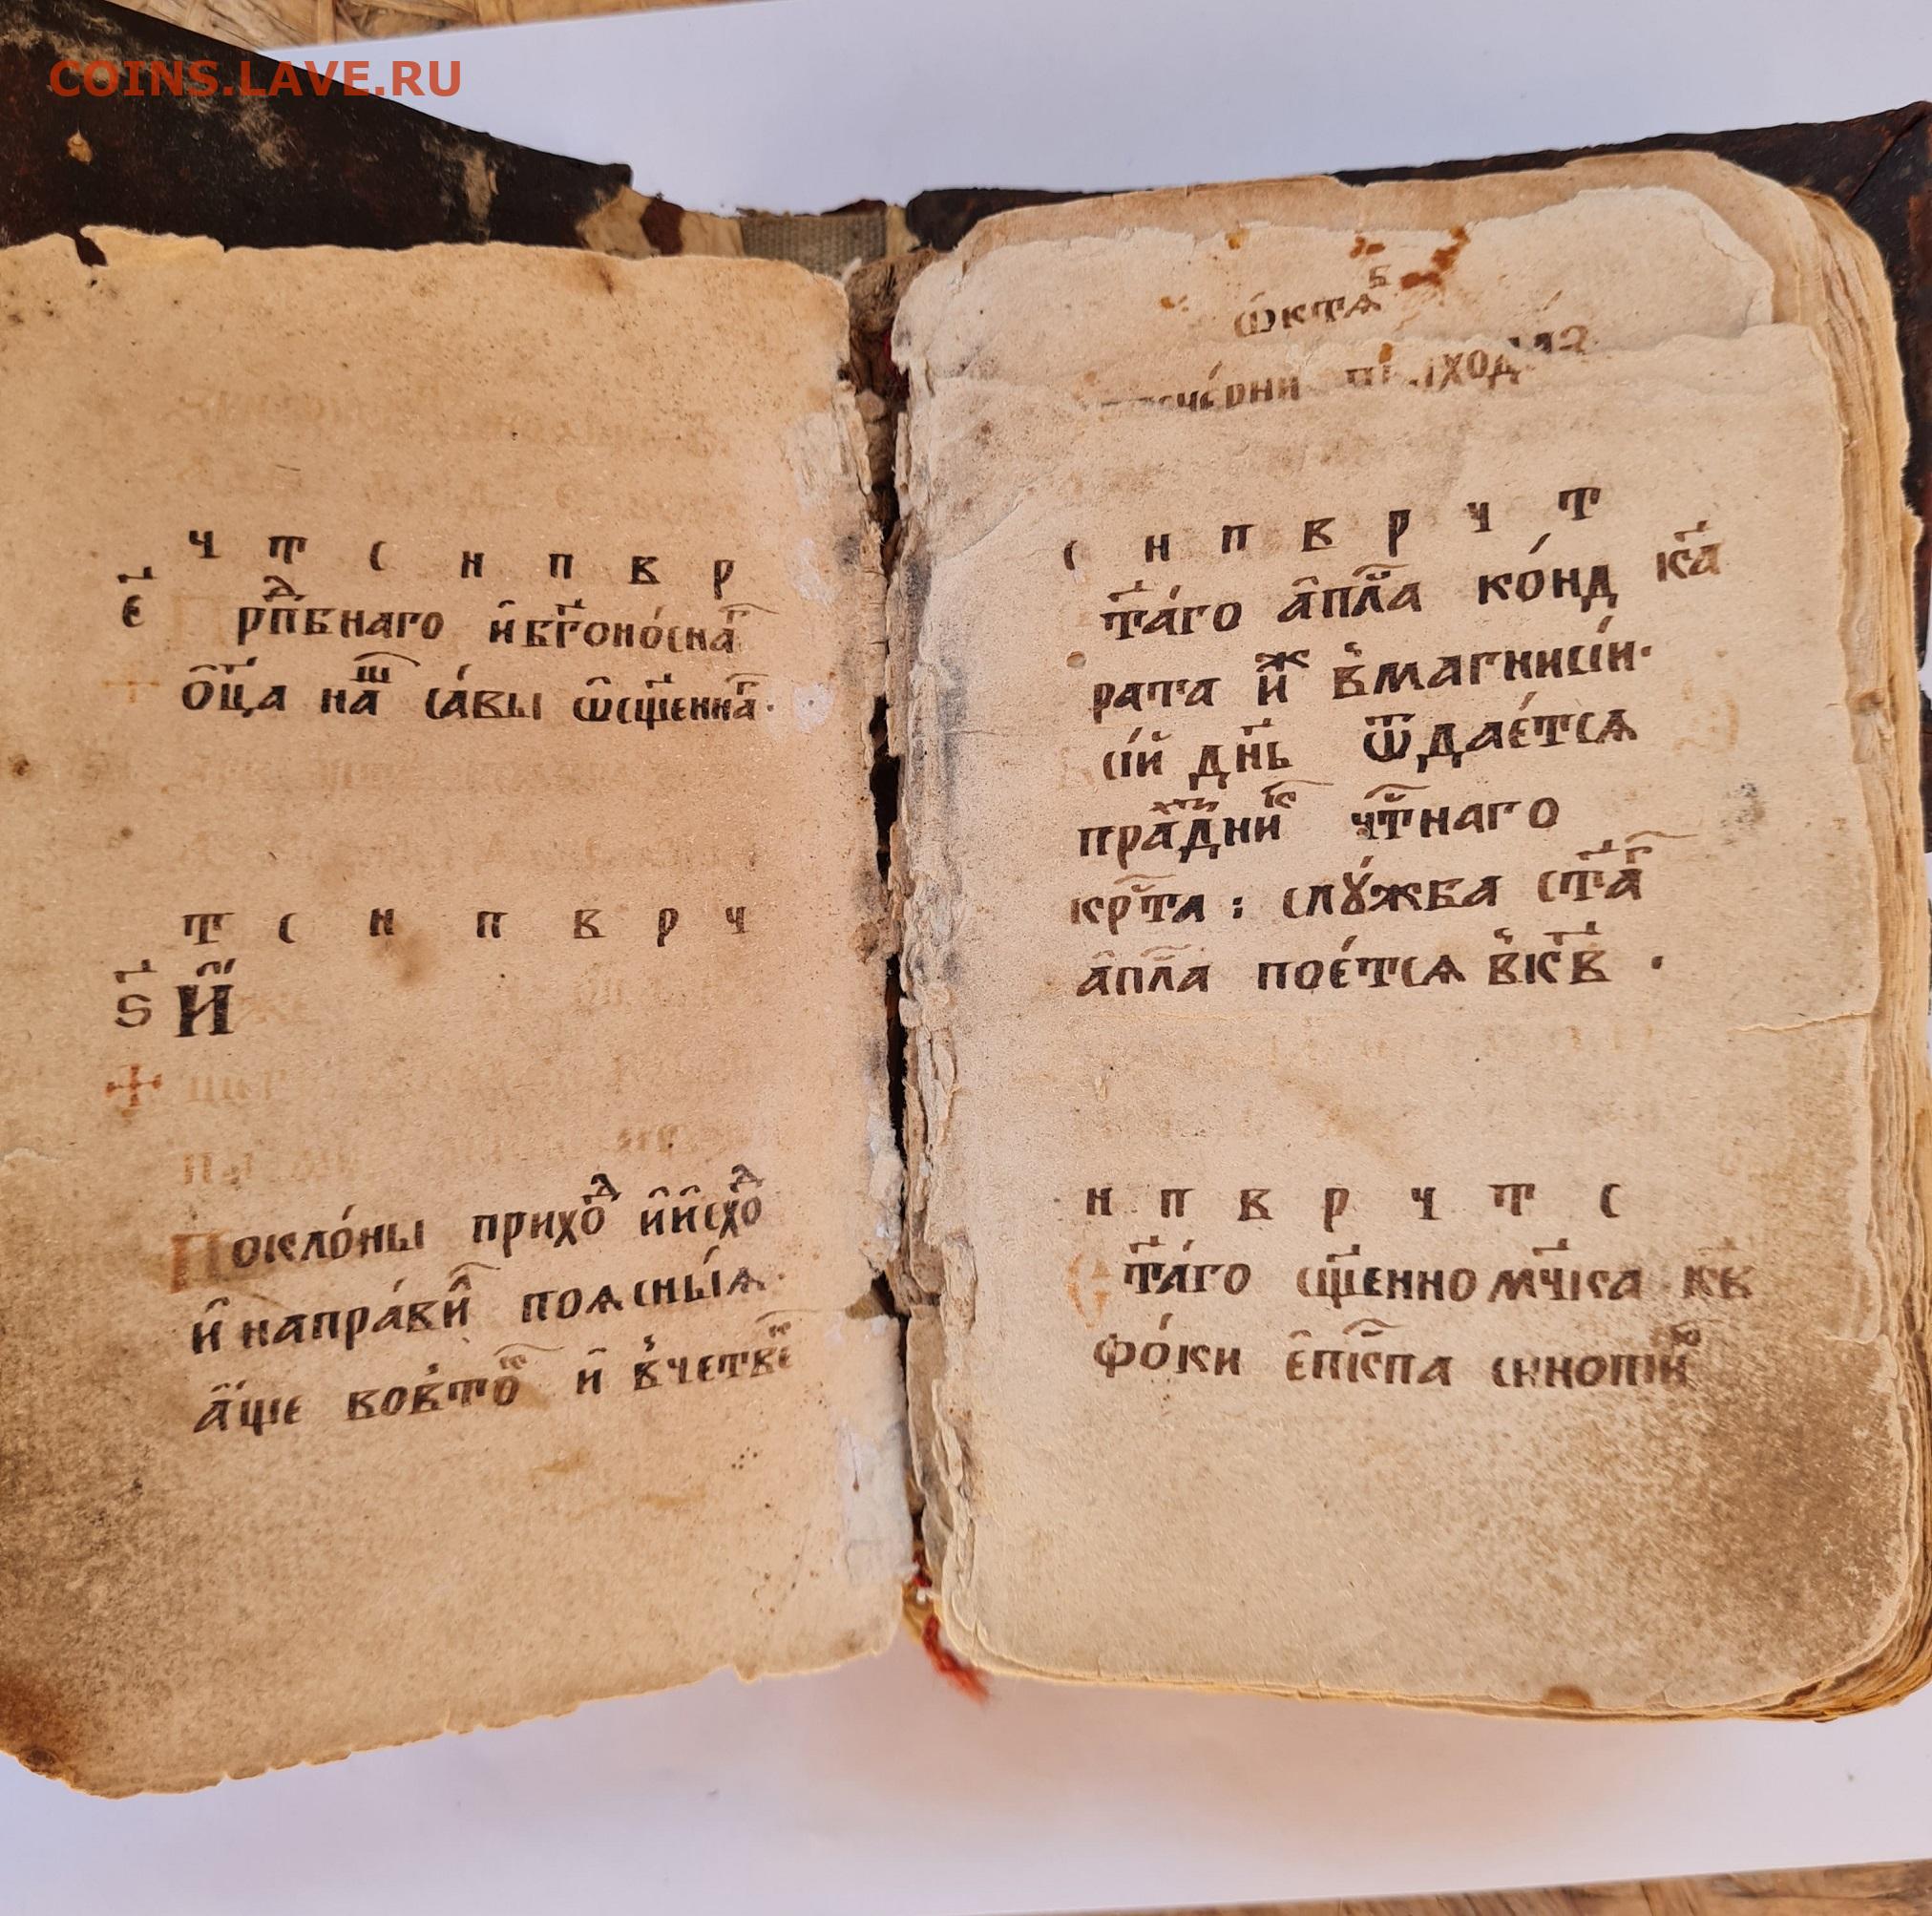 COINS.LAVE.RU
ч т с н п в р
є҃ рпⷣбнаго и҆ бг҃оно́снаⷢ҇
ѻ҆ц҃а наⷲ са́вы ѡ҆сщ҃еннаⷢ҇.
т с н п в р ч
ѕ҃ И҆́
Покло́ны прихоⷣ и҆ и҆схоⷣ
и҆ напра́ви поѧсны́ѧ.
а҆́ще вовтоⷬ҇ и҆ в̾четвеⷬ҇
ѡ҆ктѧⷠ
вече́рни
с н п в р ч т
ст҃а́го а҆пⷭ҇ла ко́нд ка
рата иⷤ в̾магнисі́и.
сі́й дн҃ь ѿдае́тсѧ
праⷥ҇дниⷦ҇ чⷭ҇тнаго
крⷭ҇та : слꙋ́жба ст҃аⷢ҇
а҆пⷭ҇ла пое́тсѧ в̾ к҃в .
н п в р ч т с
Ст҃а́го сщ҃енно мч҃ка к҃в
фо́ки є҆пⷭ҇кпа синопі́й